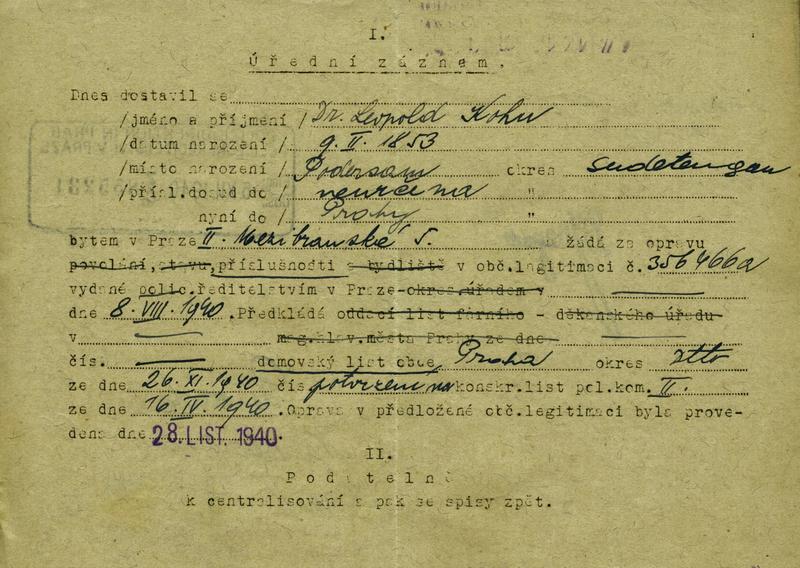 I.
Úřední záznam.
Dnes dostavil se
/jméno a příjmení / Dr. Leopold Kohn
/datum narození / 9. II. 1853
/místo narození / Podersam okres Sudetengau
/přísl.dosud do / neurčena "
nyní do / Prahy "
bytem v Praze II. Mezibranská 5. žádá za opravu
povolání,stavu,příslušnosti a bydliště v obč.legitimaci č. 356466a
vydané polic.ředitelstvím v Praze-okres.úřadem v
dne 8. VIII. 1940. Předkládá oddací list farního - děkanského úřadu
v mag.hlav.města Prahy ze dne
čís. domovský list obce Praha okres
ze dne 26. XI. 1940 čís potvrzení na konskr.list pol.kom. II.
ze dne 16. IV. 1940. Oprava v předložené obč.legitimaci byla prove-
dena dne 28. LIST. 1940.
II.
Podatelně
k centralisování a pak se spisy zpět.